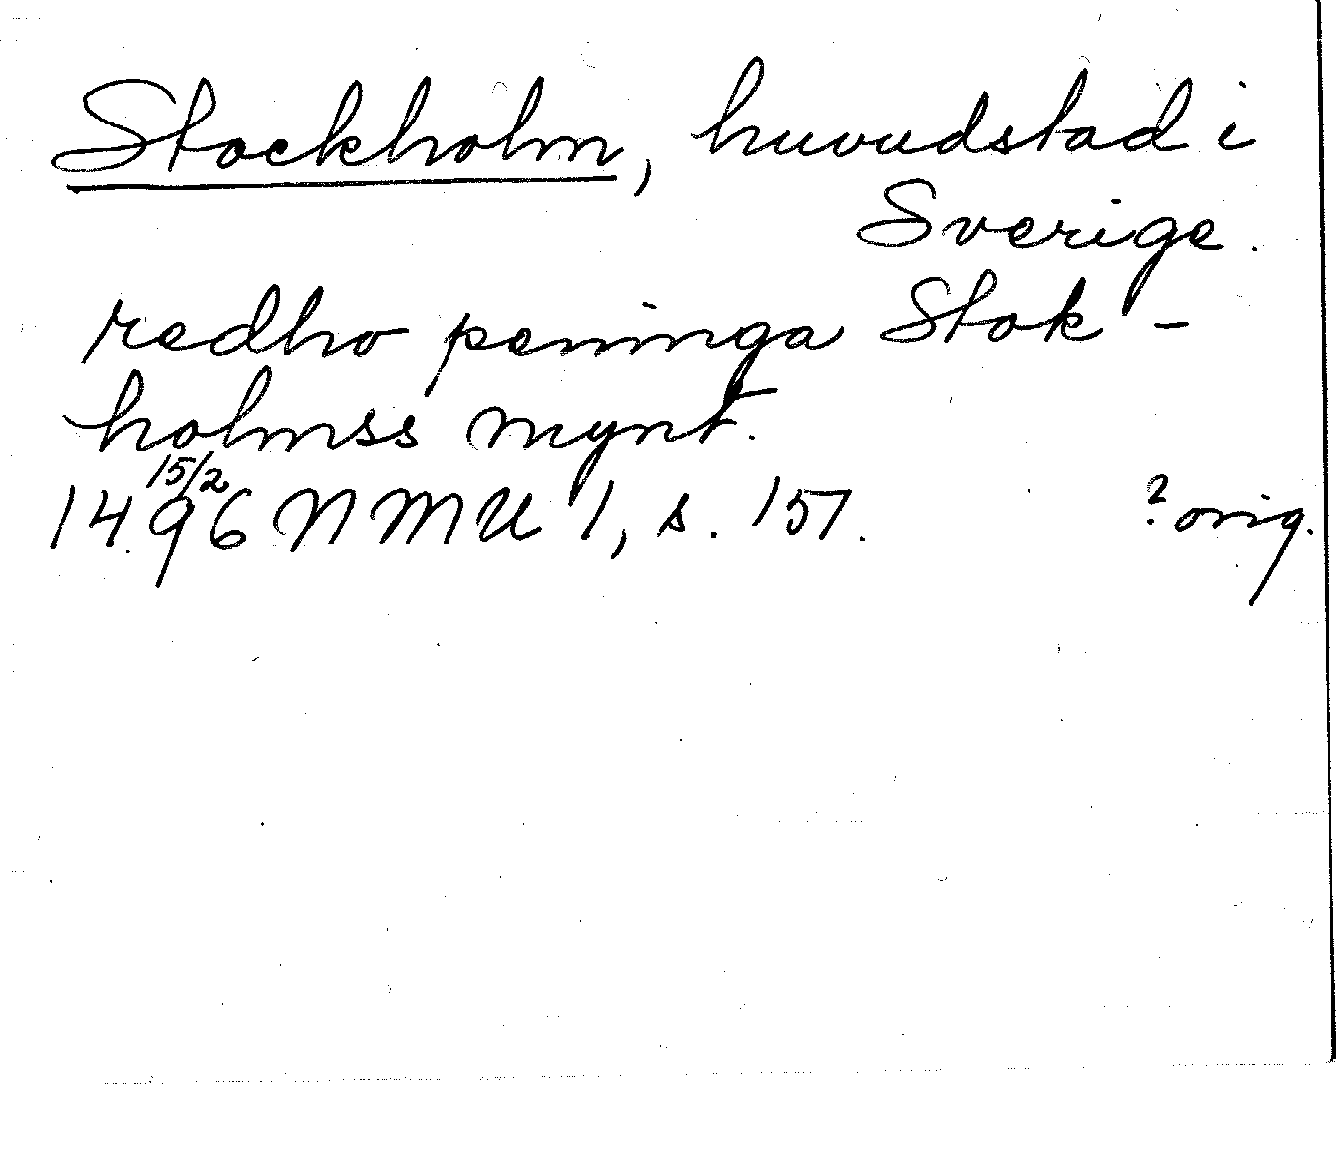 Stockholm, huvudstad i
Sverige.
redho peninga Stok-
holmss mynt.
15/2
1496 NMU 1, s. 157. ? orig.